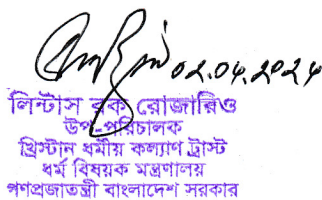 ০২.০৪.২০২৪
লিন্টাস রক রোজারিও
উপ-পরিচালক
খ্রিস্টান ধর্মীয় কল্যাণ ট্রাস্ট
ধর্ম বিষয়ক মন্ত্রণালয়
গণপ্রজাতন্ত্রী বাংলাদেশ সরকার